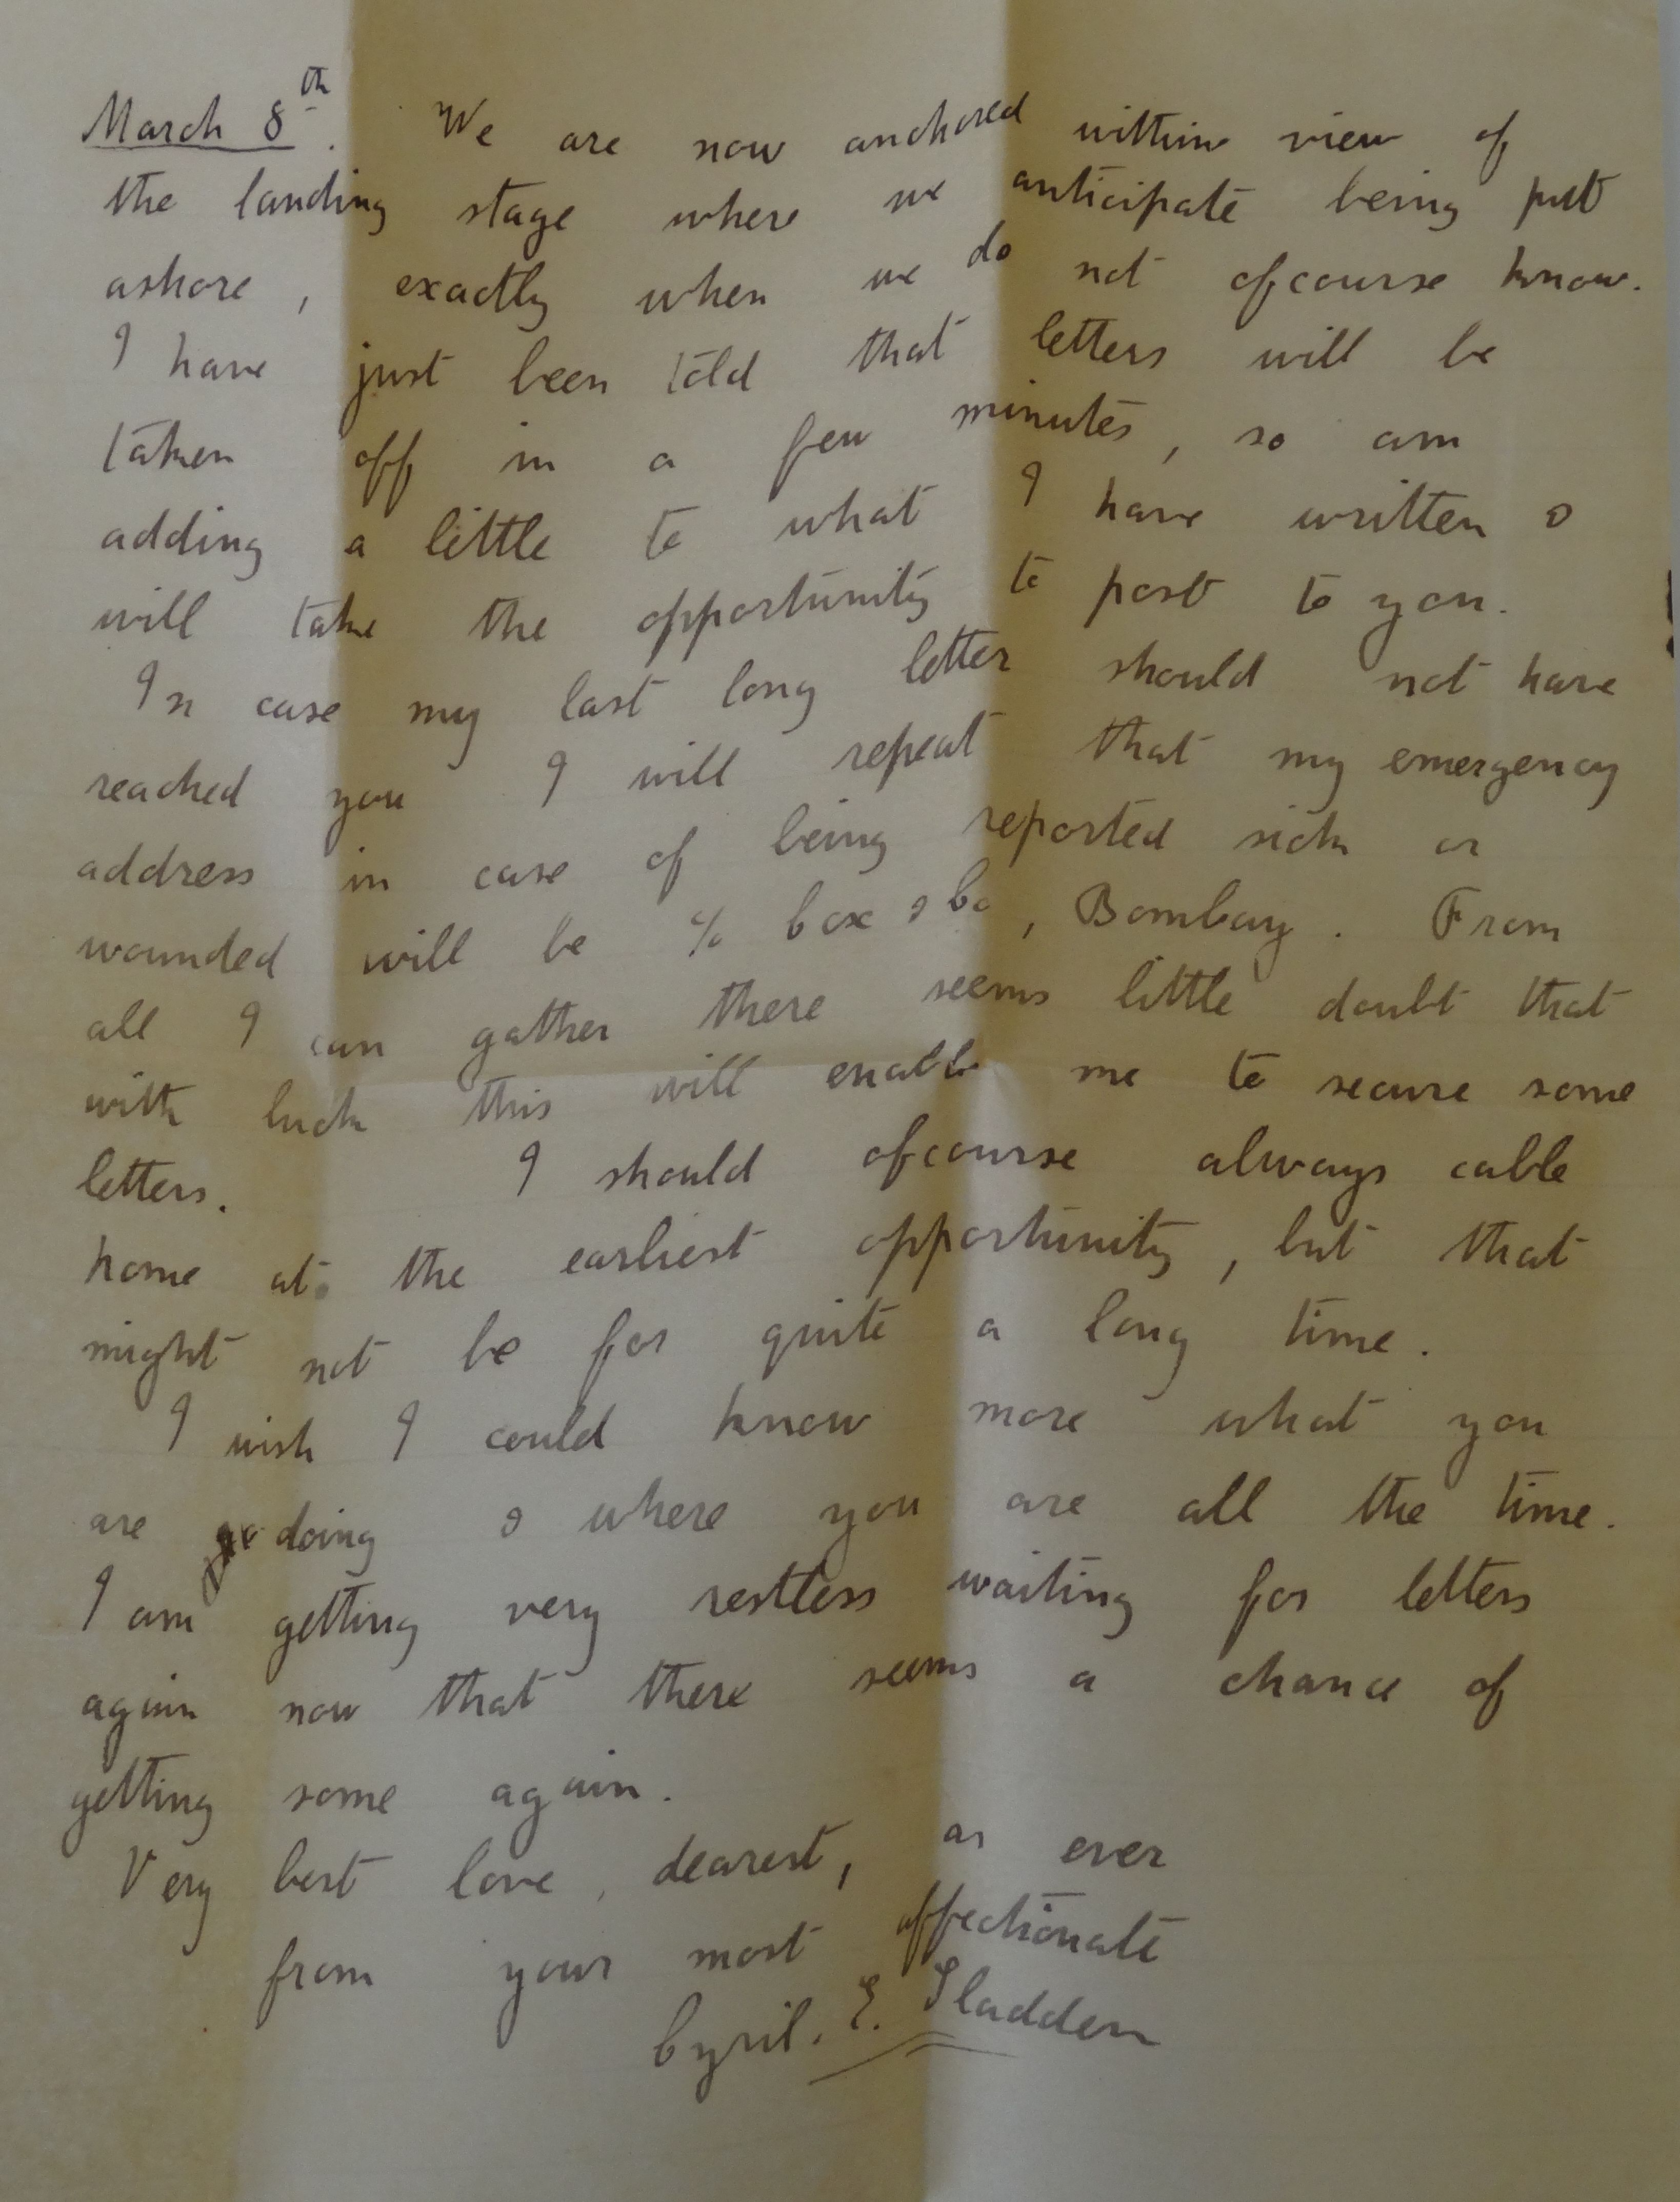 March 8th. We are now anchored within view of
the landing stage where we anticipate being put
ashore, exactly when we do not ofcourse know.
I have just been told that letters will be
taken off in a few minutes, so am
adding a little to what I have written &
will take the opportunity to post to you.
In case my last long letter should not have
reached you I will repeat that my emergency
address in case of being reported sick or
wounded will be c/o Cox & Co, Bombay. From
all I can gather there seems little doubt that
with luck this will enable me to secure some
letters. I should ofcourse always cable
home at the earliest opportunity, but that
might not be for quite a long time.
I wish I could know more what you
are doing & where you are all the time.
I am getting very restless waiting for letters
again now that there seems a chance of
getting some again.
Very best love, dearest, as ever
from your most affectionate
Cyril. E. Sladden